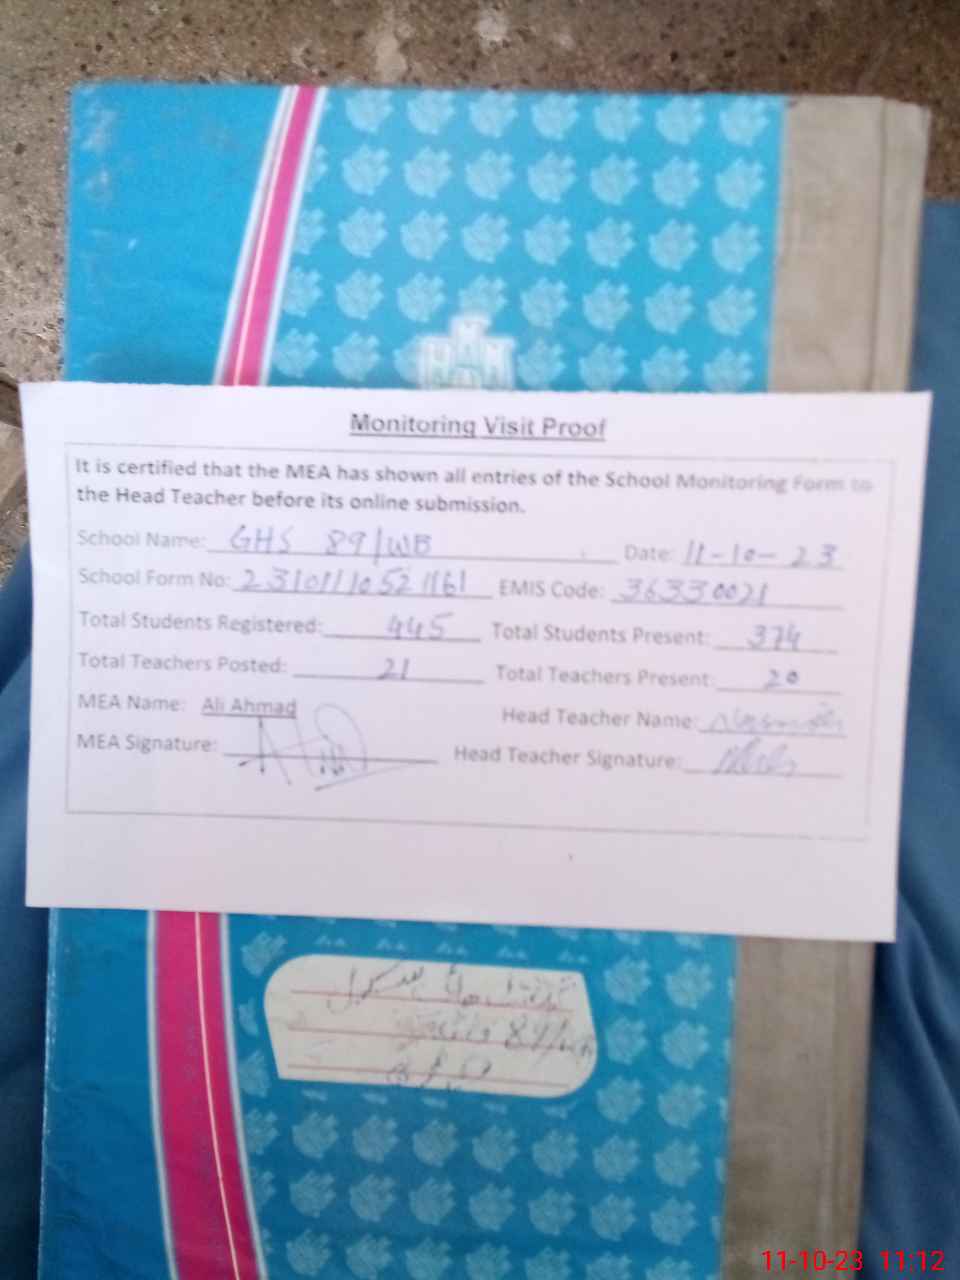 Monitoring Visit Proof
It is certified that the MEA has shown all entries of the School Monitoring Form to
the Head Teacher before its online submission.
School Name: GHS 89/WB Date: 11-10-23
School Form No: EMIS Code: 36330021
Total Students Registered: 445 Total Students Present: 374
Total Teachers Posted: 21 Total Teachers Present: 20
MEA Name: Ali Ahmad Head Teacher Name:
MEA Signature: Head Teacher Signature:
گورنمنٹ ہائی سکول
89/WB
11-10-23 11:12